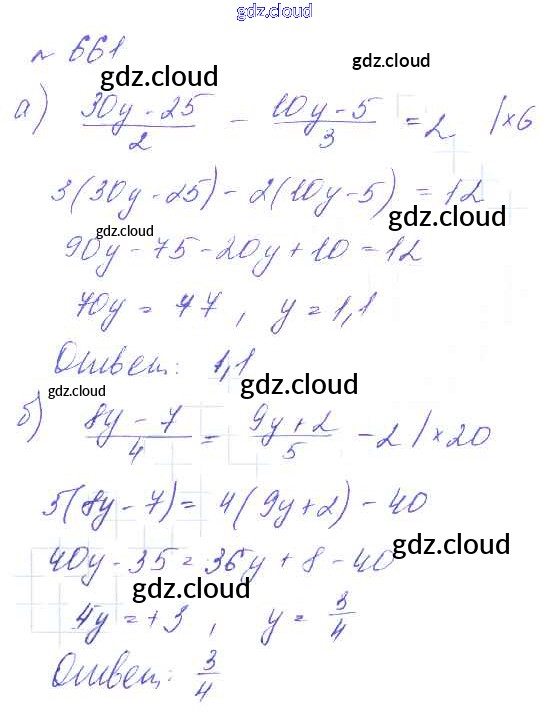 gdz.cloud
№ 661
gdz.cloud
а) (30y - 25)/2 - (10y - 5)/3 = 2 | ×6
gdz.cloud
3(30y - 25) - 2(10y - 5) = 12
gdz.cloud
gdz.cloud
90y - 75 - 20y + 10 = 12
70y = 77, y = 1,1
gdz.cloud
Ответ: 1,1
gdz.cloud
gdz.cloud
б) (8y - 7)/4 = (9y + 2)/5 - 2 | ×20
gdz.cloud
5(8y - 7) = 4(9y + 2) - 40
gdz.cloud
40y - 35 = 36y + 8 - 40
gdz.cloud
4y = +3, y = 3/4
Ответ: 3/4
gdz.cloud